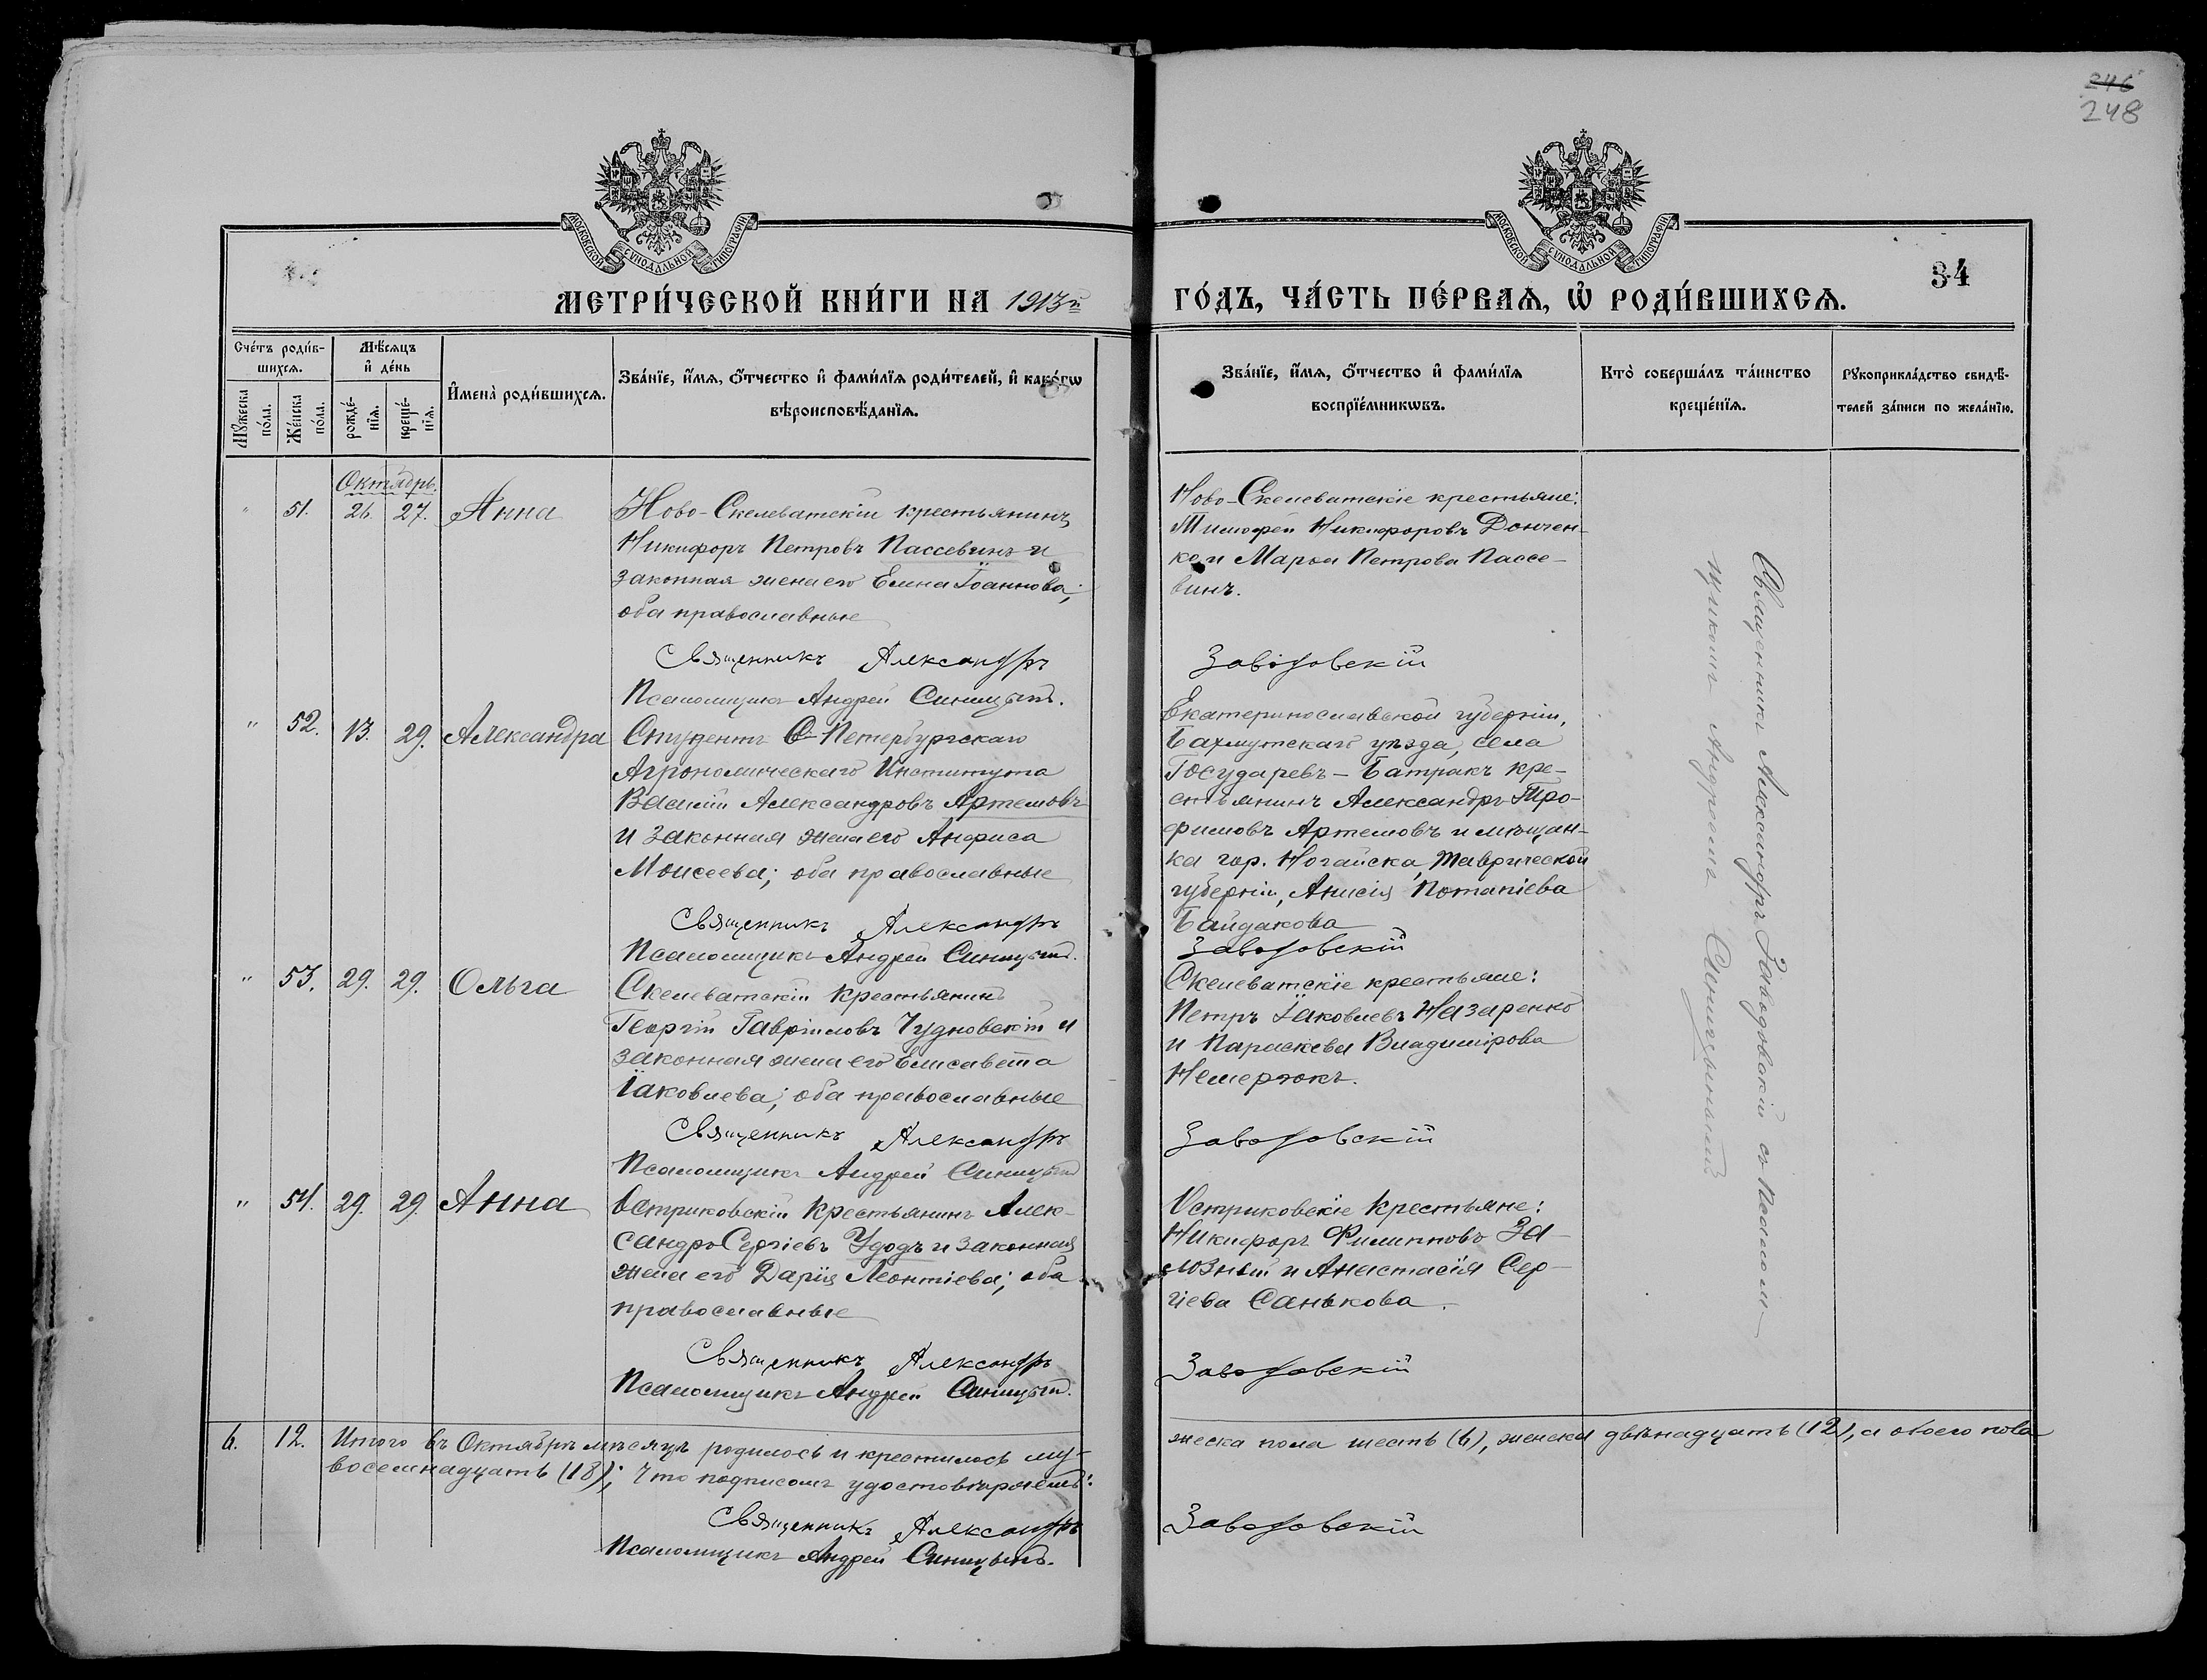 246
248
МОСКОВСКОЙ СѴНОДАЛЬНОЙ ТИПОГРАФІИ
МОСКОВСКОЙ СѴНОДАЛЬНОЙ ТИПОГРАФІИ
34
МЕТРИ́ЧЕСКОЙ КНИ́ГИ НА 1913й
ГО́ДЪ, ЧА́СТЬ ПЕ́РВАѦ, Ѽ РОДИ́ВШИХСѦ.
Сче́тъ роди́в-
шихсѧ.
Мѣ́сѧцъ
и҆ де́нь
Му́жеска по́ла.
Же́нска по́ла.
рожде́-нїѧ.
креще́-нїѧ.
И҆мена̀ роди́вшихсѧ.
Зва́нїе, и҆́мѧ, ѻ҆́тчество и҆ фами́лїѧ роди́телей, и҆ како́гѡ
вѣроисповѣ́данїѧ.
Зва́нїе, и҆́мѧ, ѻ҆́тчество и҆ фами́лїѧ
воспрїе́мникѡвъ.
Кто̀ соверша́лъ та́инство
креще́нїѧ.
Рꙋкоприкла́дство свидѣ́-
телей за́писи по жела́нїю.
Октябрь.
" 51. 26. 27. Анна
Ново-Скелеватскій крестьянинъ
Никифоръ Петровъ Пассевинъ и
законная жена его Елена Іоаннова;
оба православные
Священникъ Александръ
Псаломщикъ Андрей Синицын.
Ново-Скелеватскіе крестьяне:
Тимофей Никифоровъ Дончен-
ко и Марѳа Петрова Пассе-
винъ.
Заводовскій
" 52. 13. 29. Александра
Студентъ С-Петербургскаго
Агрономическаго Института
Василій Александровъ Артемовъ
и законная жена его Анфиса
Моисеева; оба православные
Священникъ Александръ
Псаломщикъ Андрей Синицын.
Екатеринославской губерніи,
Бахмутскаго уѣзда, села
Государевъ-Батракъ кре-
стьянинъ Александръ Тро-
фимовъ Артемовъ и мѣщан-
ка гор. Ногайска, Таврической
губерніи, Анисія Потапіева
Байдакова
Заводовскій
" 53. 29. 29. Ольга
Скелеватскій крестьянинъ
Георгій Гавріиловъ Чудновскій и
законная жена его Елисавета
Іаковлева; оба православные
Священникъ Александръ
Псаломщикъ Андрей Синицын
Скелеватскіе крестьяне:
Петръ Іаковлевъ Назаренко
и Параскева Владимірова
Немерюкъ.
Заводовскій
" 54. 29. 29. Анна
Устриковскій крестьянинъ Алек-
сандръ Сергіевъ Удодъ и законная
жена его Дарія Леонтіева; оба
православные
Священникъ Александръ
Псаломщикъ Андрей Синицын.
Устриковскіе крестьяне:
Никифоръ Филипповъ За-
лозный и Анастасія Сер-
гіева Санькова.
Заводовскій
Священникъ Александръ Заводовскій съ Псалом-
щикомъ Андреемъ Синицынымъ
6. 12. Итого въ Октябрѣ мѣсяцѣ родилось и крестилось му-
жеска пола шесть (6), женска двѣнадцать (12), а обоего пола
восемнадцать (18); Что подписомъ удостовѣряемъ:
Священникъ Александръ
Заводовскій
Псаломщикъ Андрей Синицынъ.